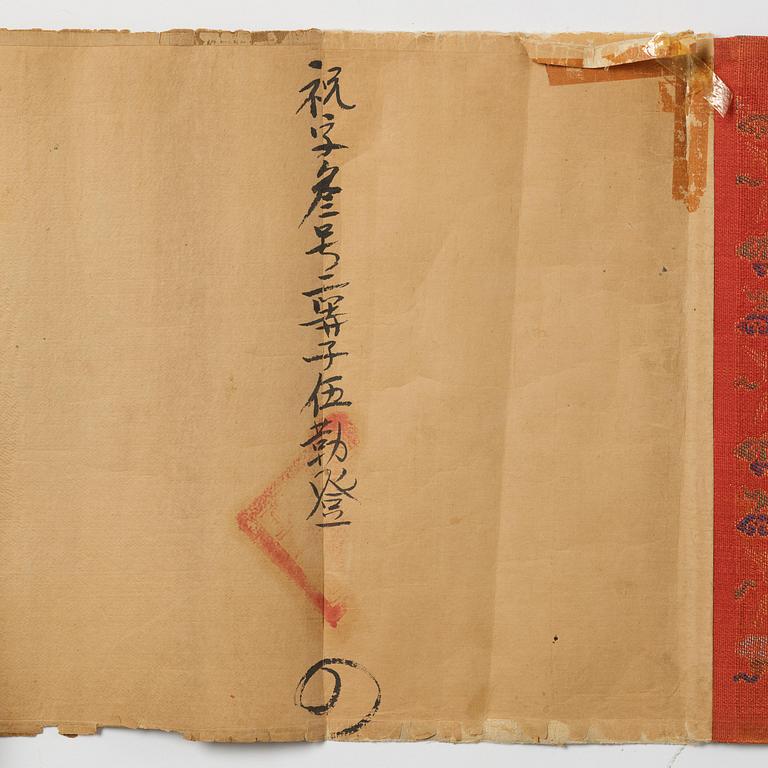 祝字叁号二等子伍勒登